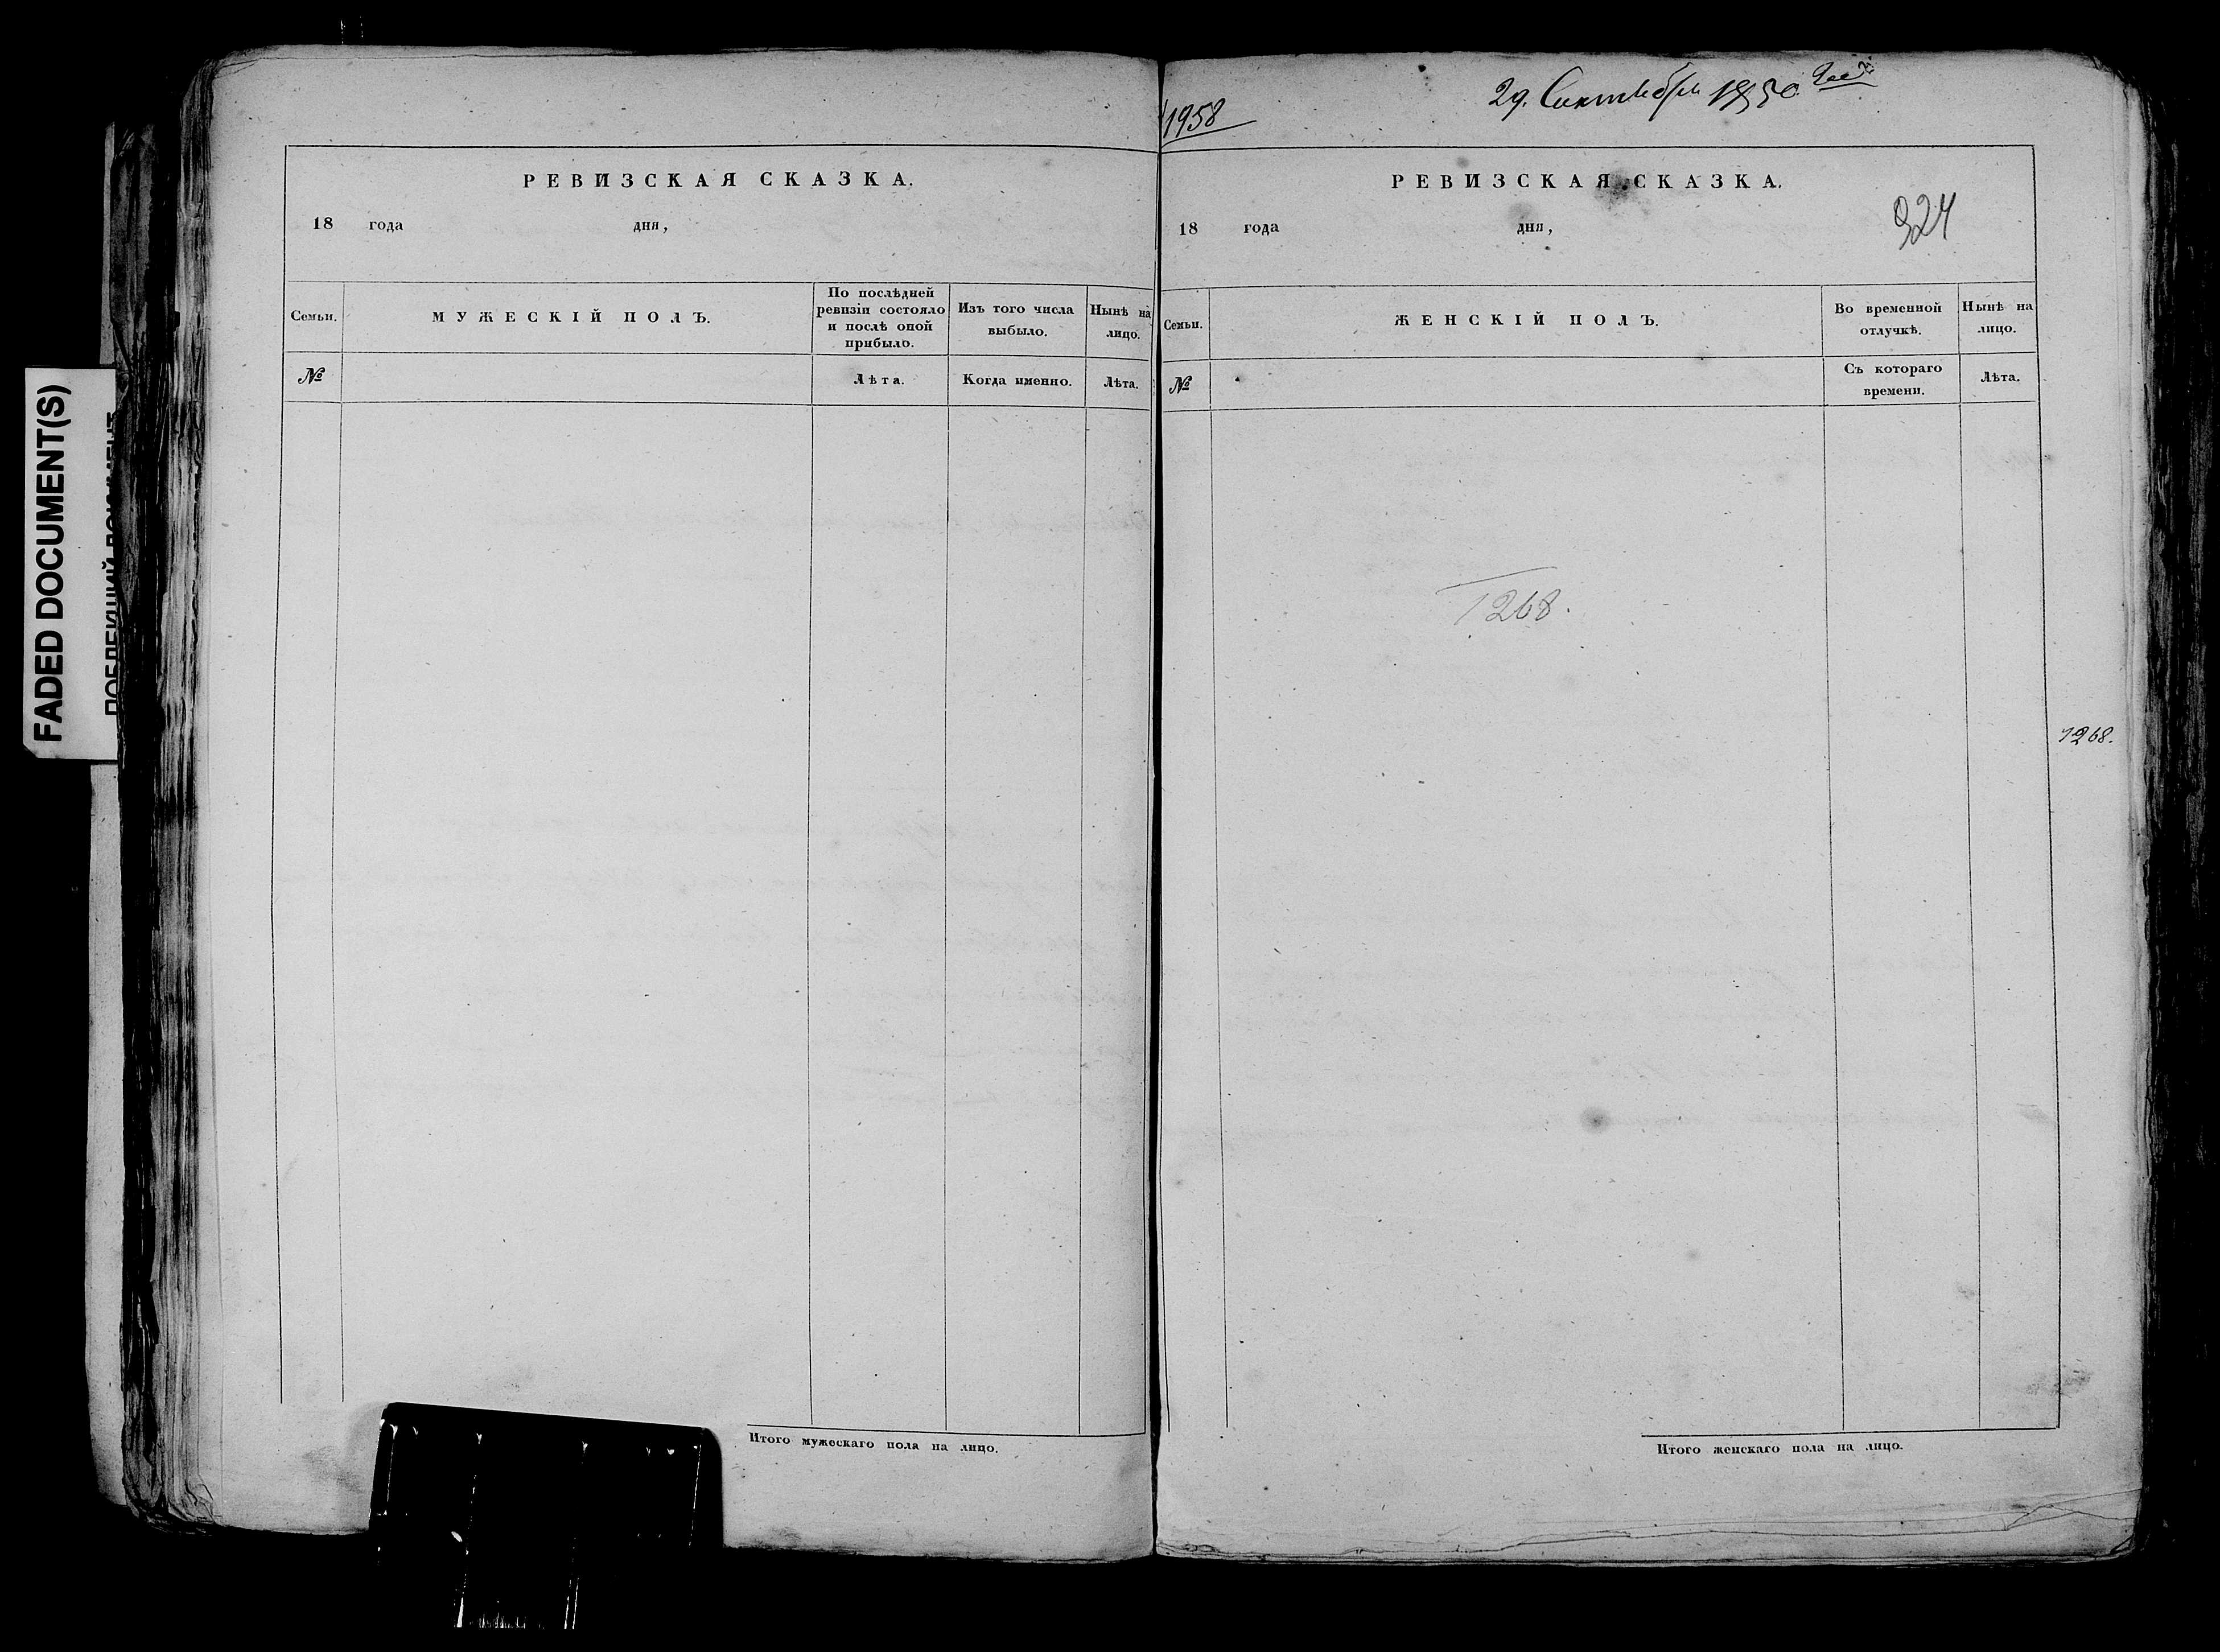 FADED DOCUMENT(S)
РЕВИЗСКАЯ СКАЗКА.
18 года дня,
Семьи.
МУЖЕСКІЙ ПОЛЪ.
По послѣдней
ревизіи состояло
и послѣ оной
прибыло.
Изъ того числа
выбыло.
Нынѣ на
лицо.
№
Лѣта.
Когда именно.
Лѣта.
Итого мужескаго пола на лицо.
1958
29. Сентября 1850
РЕВИЗСКАЯ СКАЗКА.
324
18 года дня,
Семьи.
ЖЕНСКІЙ ПОЛЪ.
Во временной
отлучкѣ.
Нынѣ на
лицо.
№
Съ котораго
времени.
Лѣта.
1268.
1268.
Итого женскаго пола на лицо.